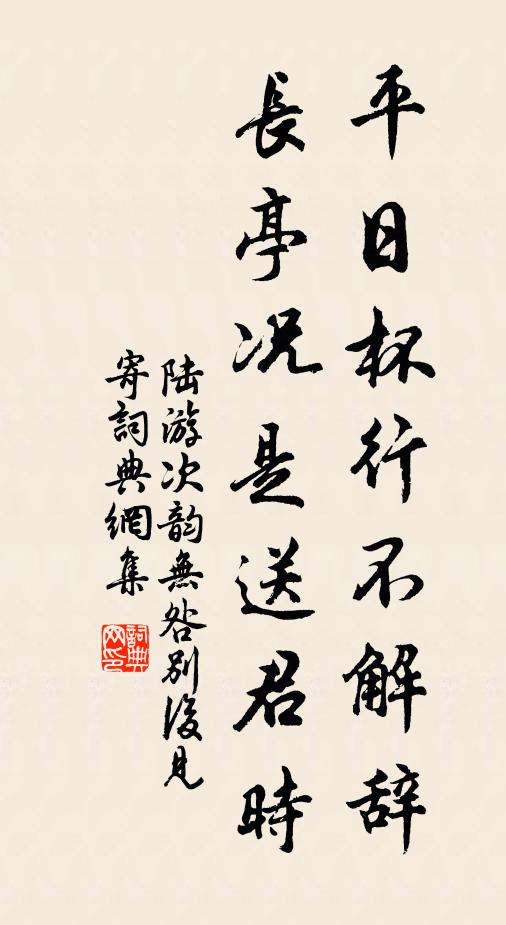 平日杯行不解辞
長亭况是送君時
陆游次韵無咎別後見
寄詞典網集
詞典
网印